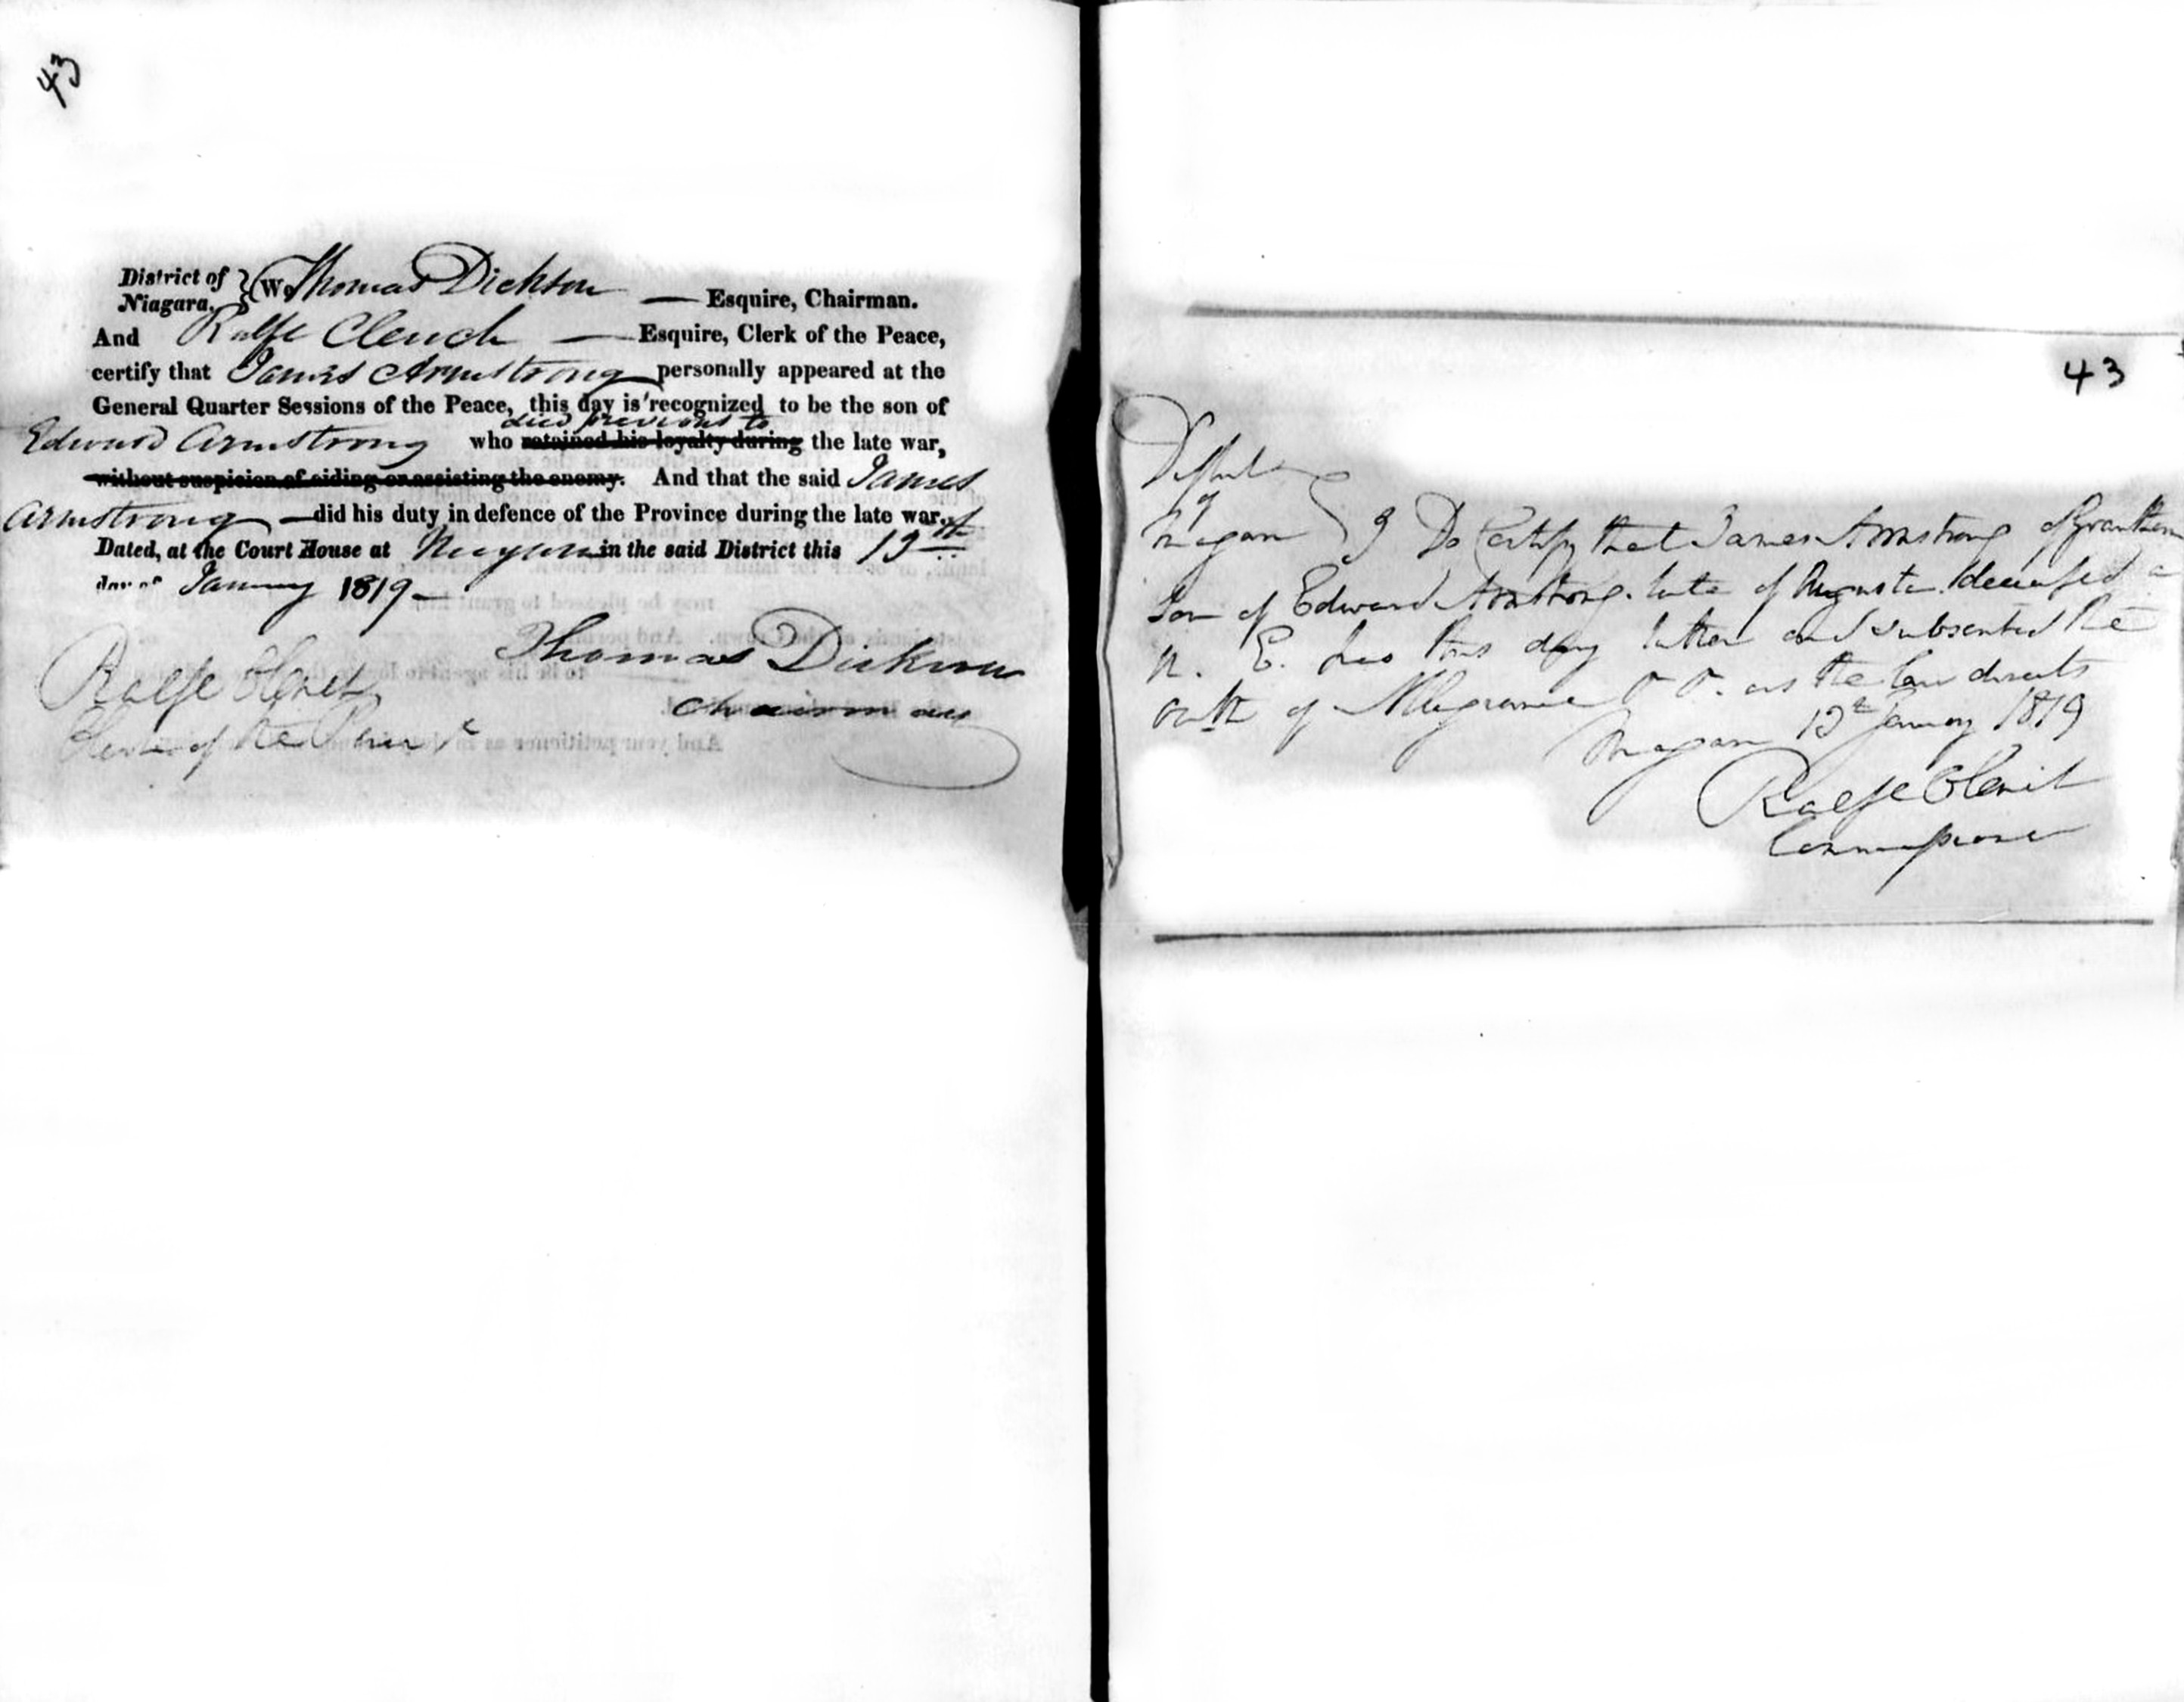 43
District of } We Thomas Dickson — Esquire, Chairman.
Niagara.
And Ralfe Clench — Esquire, Clerk of the Peace,
certify that James Armstrong personally appeared at the
General Quarter Sessions of the Peace, this day is recognized to be the son of
died previous to
Edward Armstrong who retained his loyalty during the late war,
without suspicion of aiding or assisting the enemy. And that the said James
Armstrong — did his duty in defence of the Province during the late war.
Dated, at the Court House at Niagara in the said District this 13th
day of January 1819 —
Thomas Dickson
Chairman
Ralfe Clench
Clerk of the Peace
43
District
of
Niagara } I Do Certify that James Armstrong of Grantham
Son of Edward Armstrong late of Augusta deceased a
U. E. has this day taken and subscribed the
Oath of Allegiance as the law directs
Niagara 13th January 1819
Ralfe Clench
Commissioner